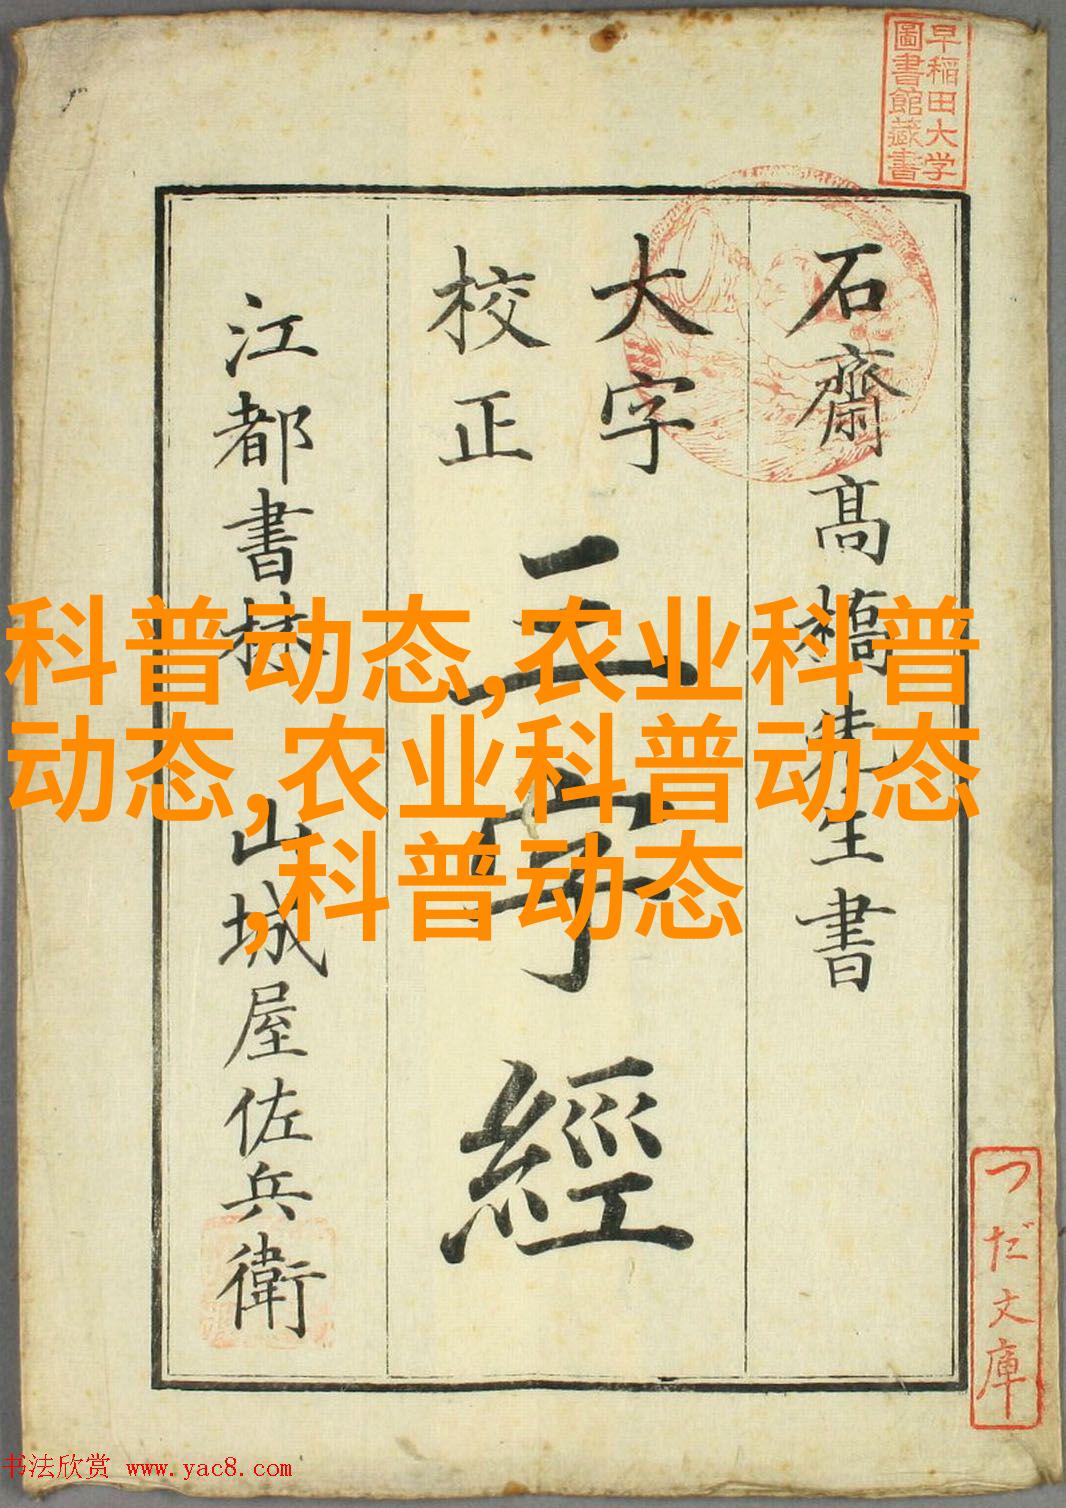 早稲田大学
圖書館藏書
石齋髙橋先生書
大字
校正
三字經
江都書林 山城屋佐兵衛
つだ文庫
科普动态,农业科普
动态,农业科普动态
,科普动态
书法欣赏 www.yac8.com